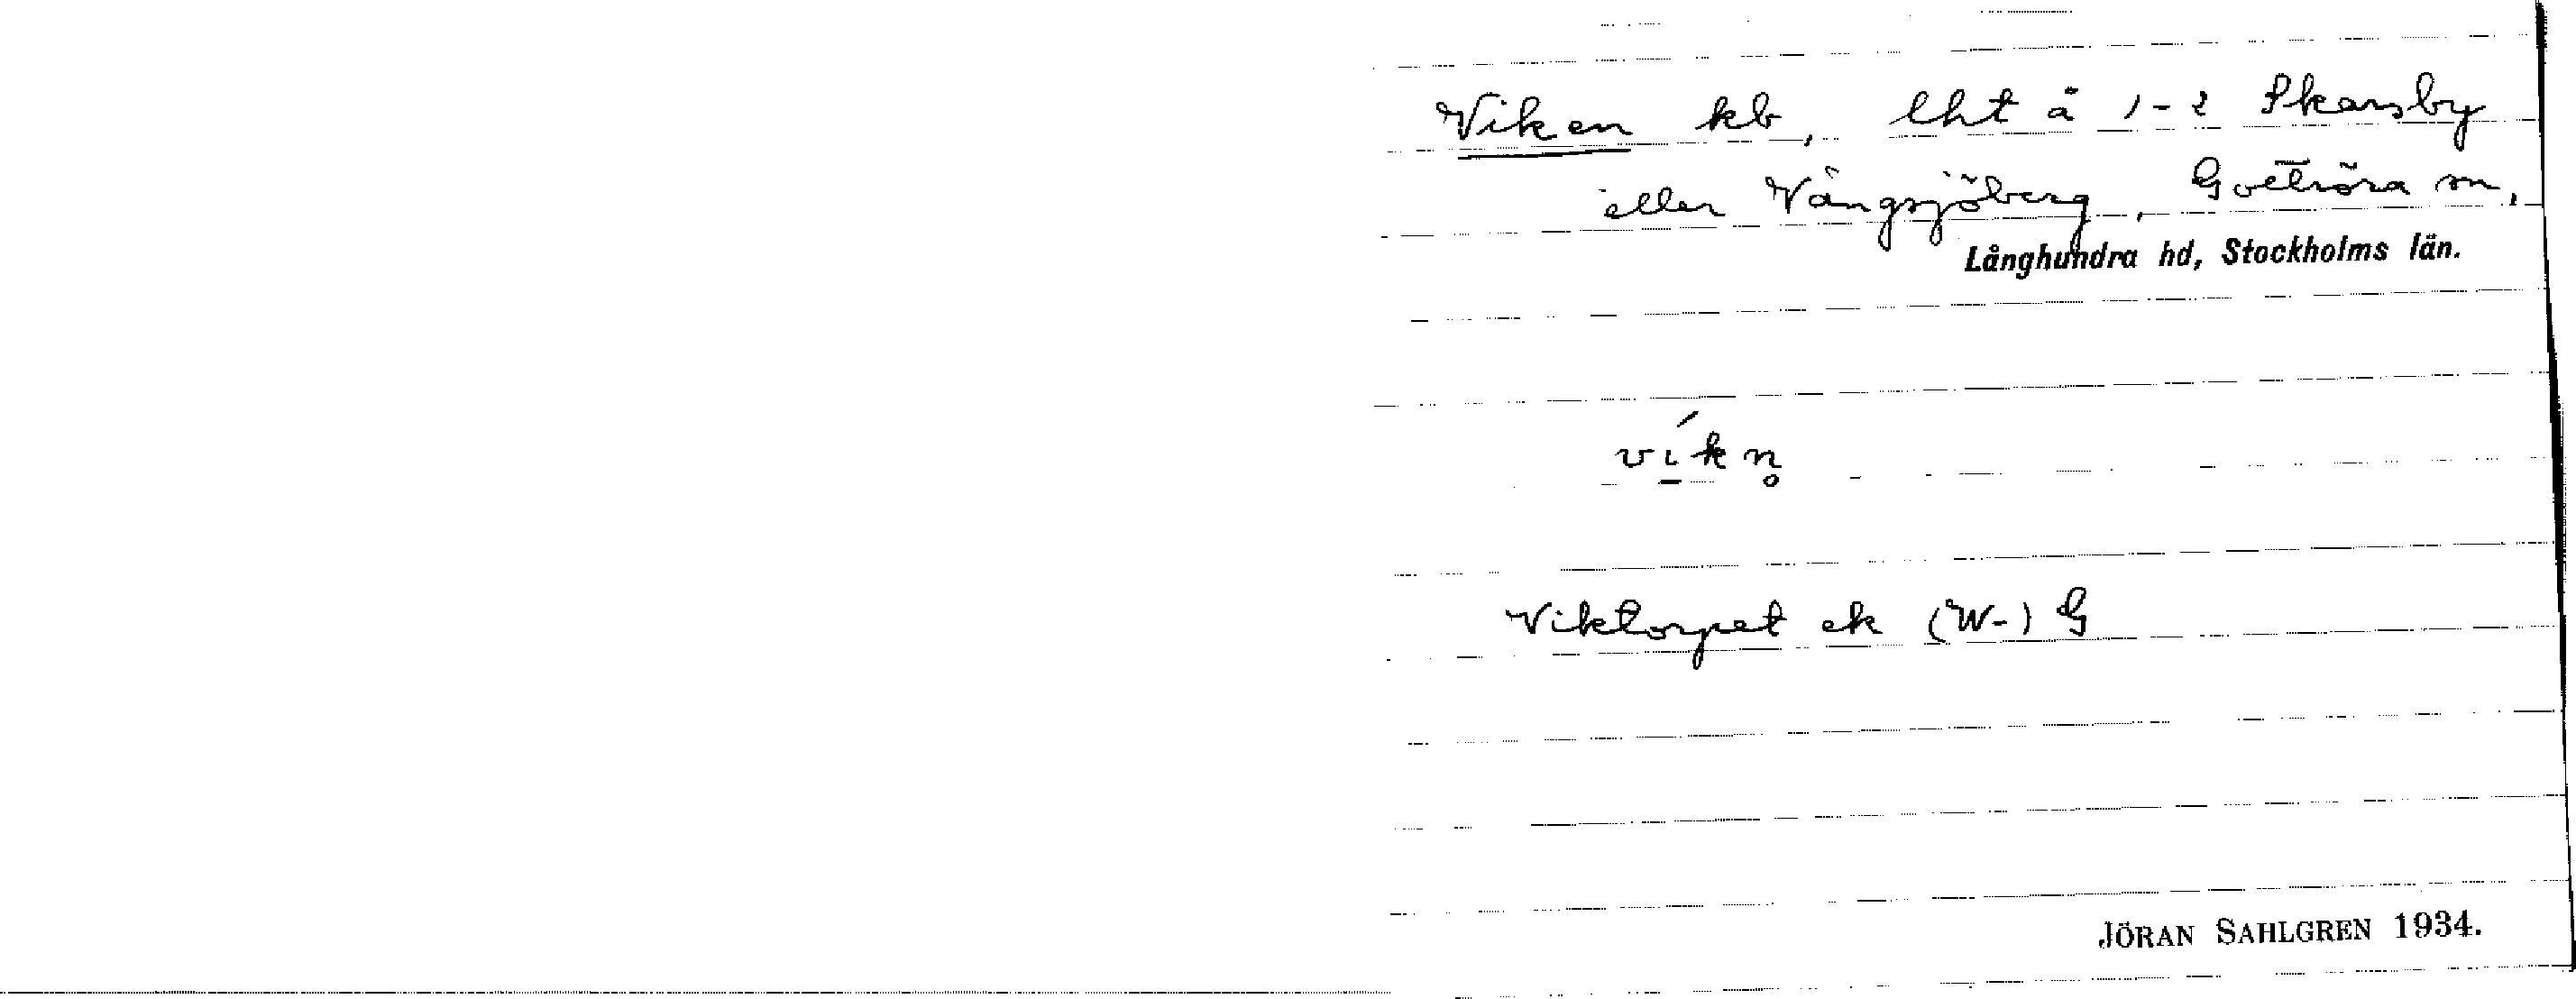 Viken kb, lht å 1-2 Skarsby
eller Vängsjöberg, Gottröra sn,
Långhundra hd, Stockholms län.
víkn̥
Viktorpet ek (W-) G
JÖRAN SAHLGREN 1934.